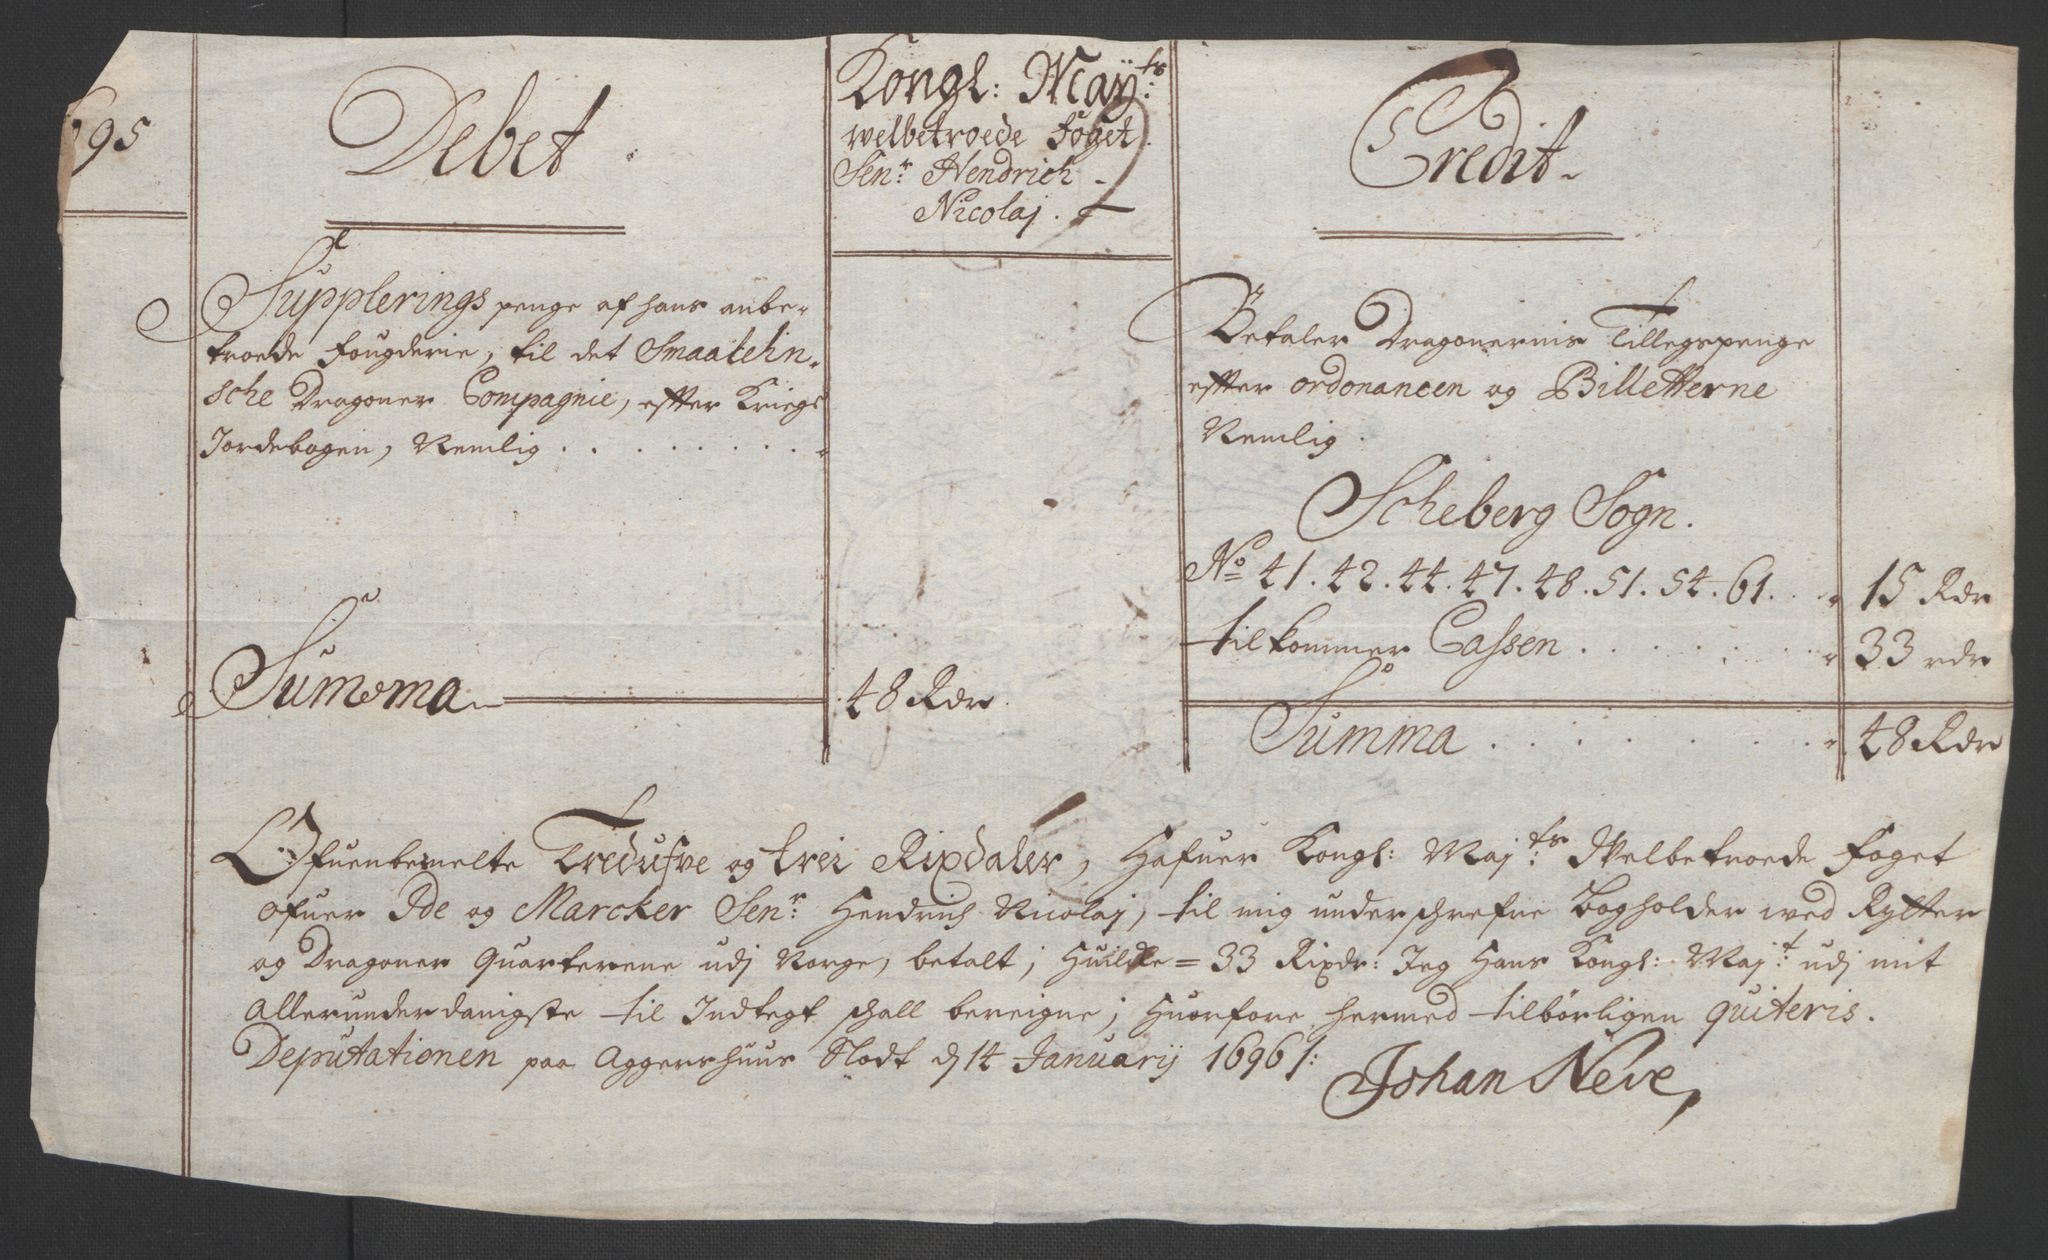 695
Debet
Kongl: Maÿts:
welbetroede Foget
Senr: Hendrich
Nicolaj.
Credit
Supplerings penge af hans anbe-
troede Fougderie, til det Smaalehn-
sche Dragoner Compagnie, effter Kriegs
Jordebogen, Nemlig . . . . . . . .
Summa 48 Rdr
Betaler Dragonernis Tillegspenge
effter ordonancen og Billetterne
Nemlig.
Scheberg Sogn.
No 41. 42. 44. 47. 48. 51. 54. 61. . . 15 Rdr
tilkommer Cassen . . . . . . . 33 rdr
Summa . . . . . . . 48 Rdr
Ofuenbemelte Tredufve og trei Rixdaler, Hafuer Kongl: Maj:ts Welbetroede Foget
ofuer Ide og Marcker Senr: Hendrich Nicolaj, til mig underschrefne Bogholder wed Rytter
og Dragoner Quarterene udj Norge, betalt; Huilke = 33 Rixdr: Jeg Hans Kongl: Maj:t udj mit
Allerunderdanigste til Indtegt schall bereigne; Huorfore hermed tilbörligen quiteris.
Deputationen paa Aggershuus Slodt d 14 Januarij 1696/:
Johan Neve